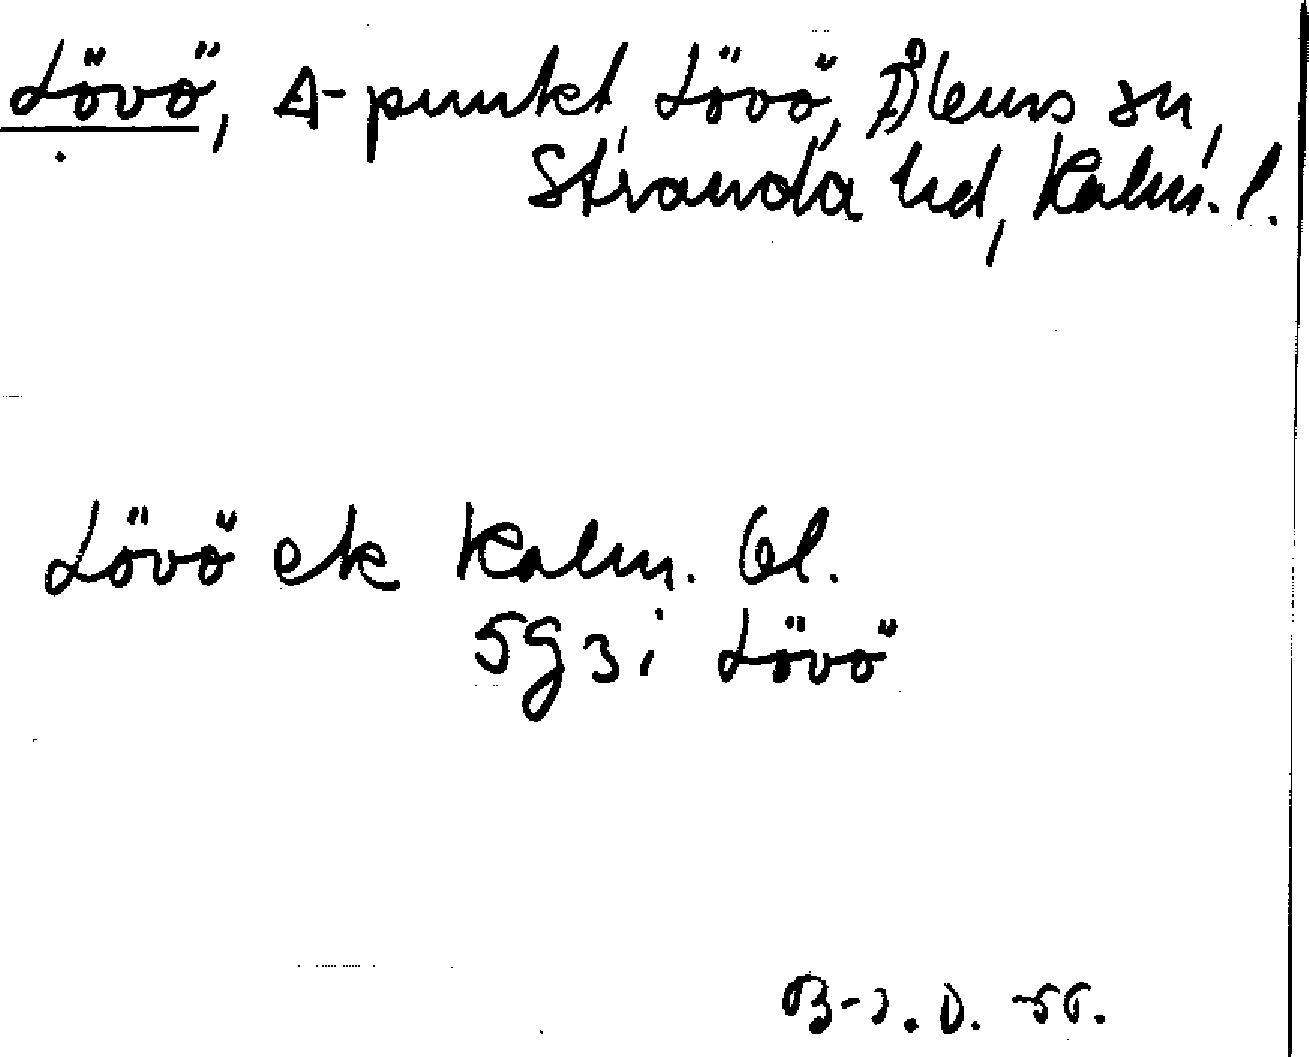 Lövö, Δ-punkt, Lövö, Ålems sn,
Stranda hd, Kalm. l.
Lövö ek Kalm. 6l.
5g3i Lövö
B-J. D. -56.